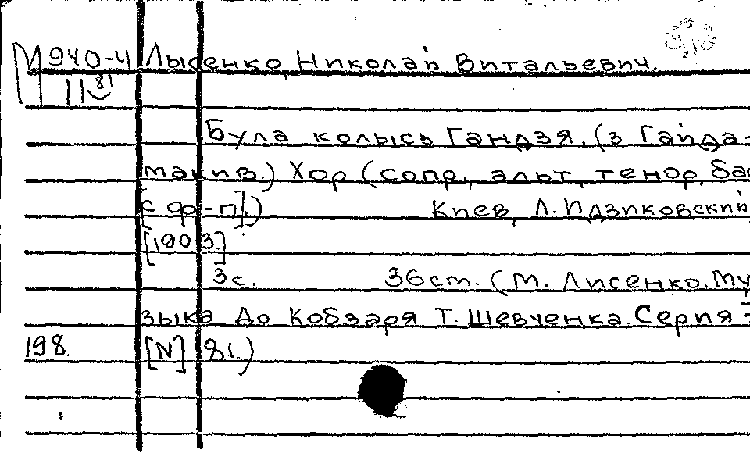 М 940-4 Лысенко, Николай Витальевич.
11 81
Була колысь Гандзя. (з Гайда-
макив.) Хор (сопр., альт, тенор, бас
[с ф-п].) Киев, Л. Идзиковский
[1903]
3с. 36 cm. (М. Лисенко. Му-
зыка до Кобзаря Т. Шевченка. Серия
198 [N] 81.)